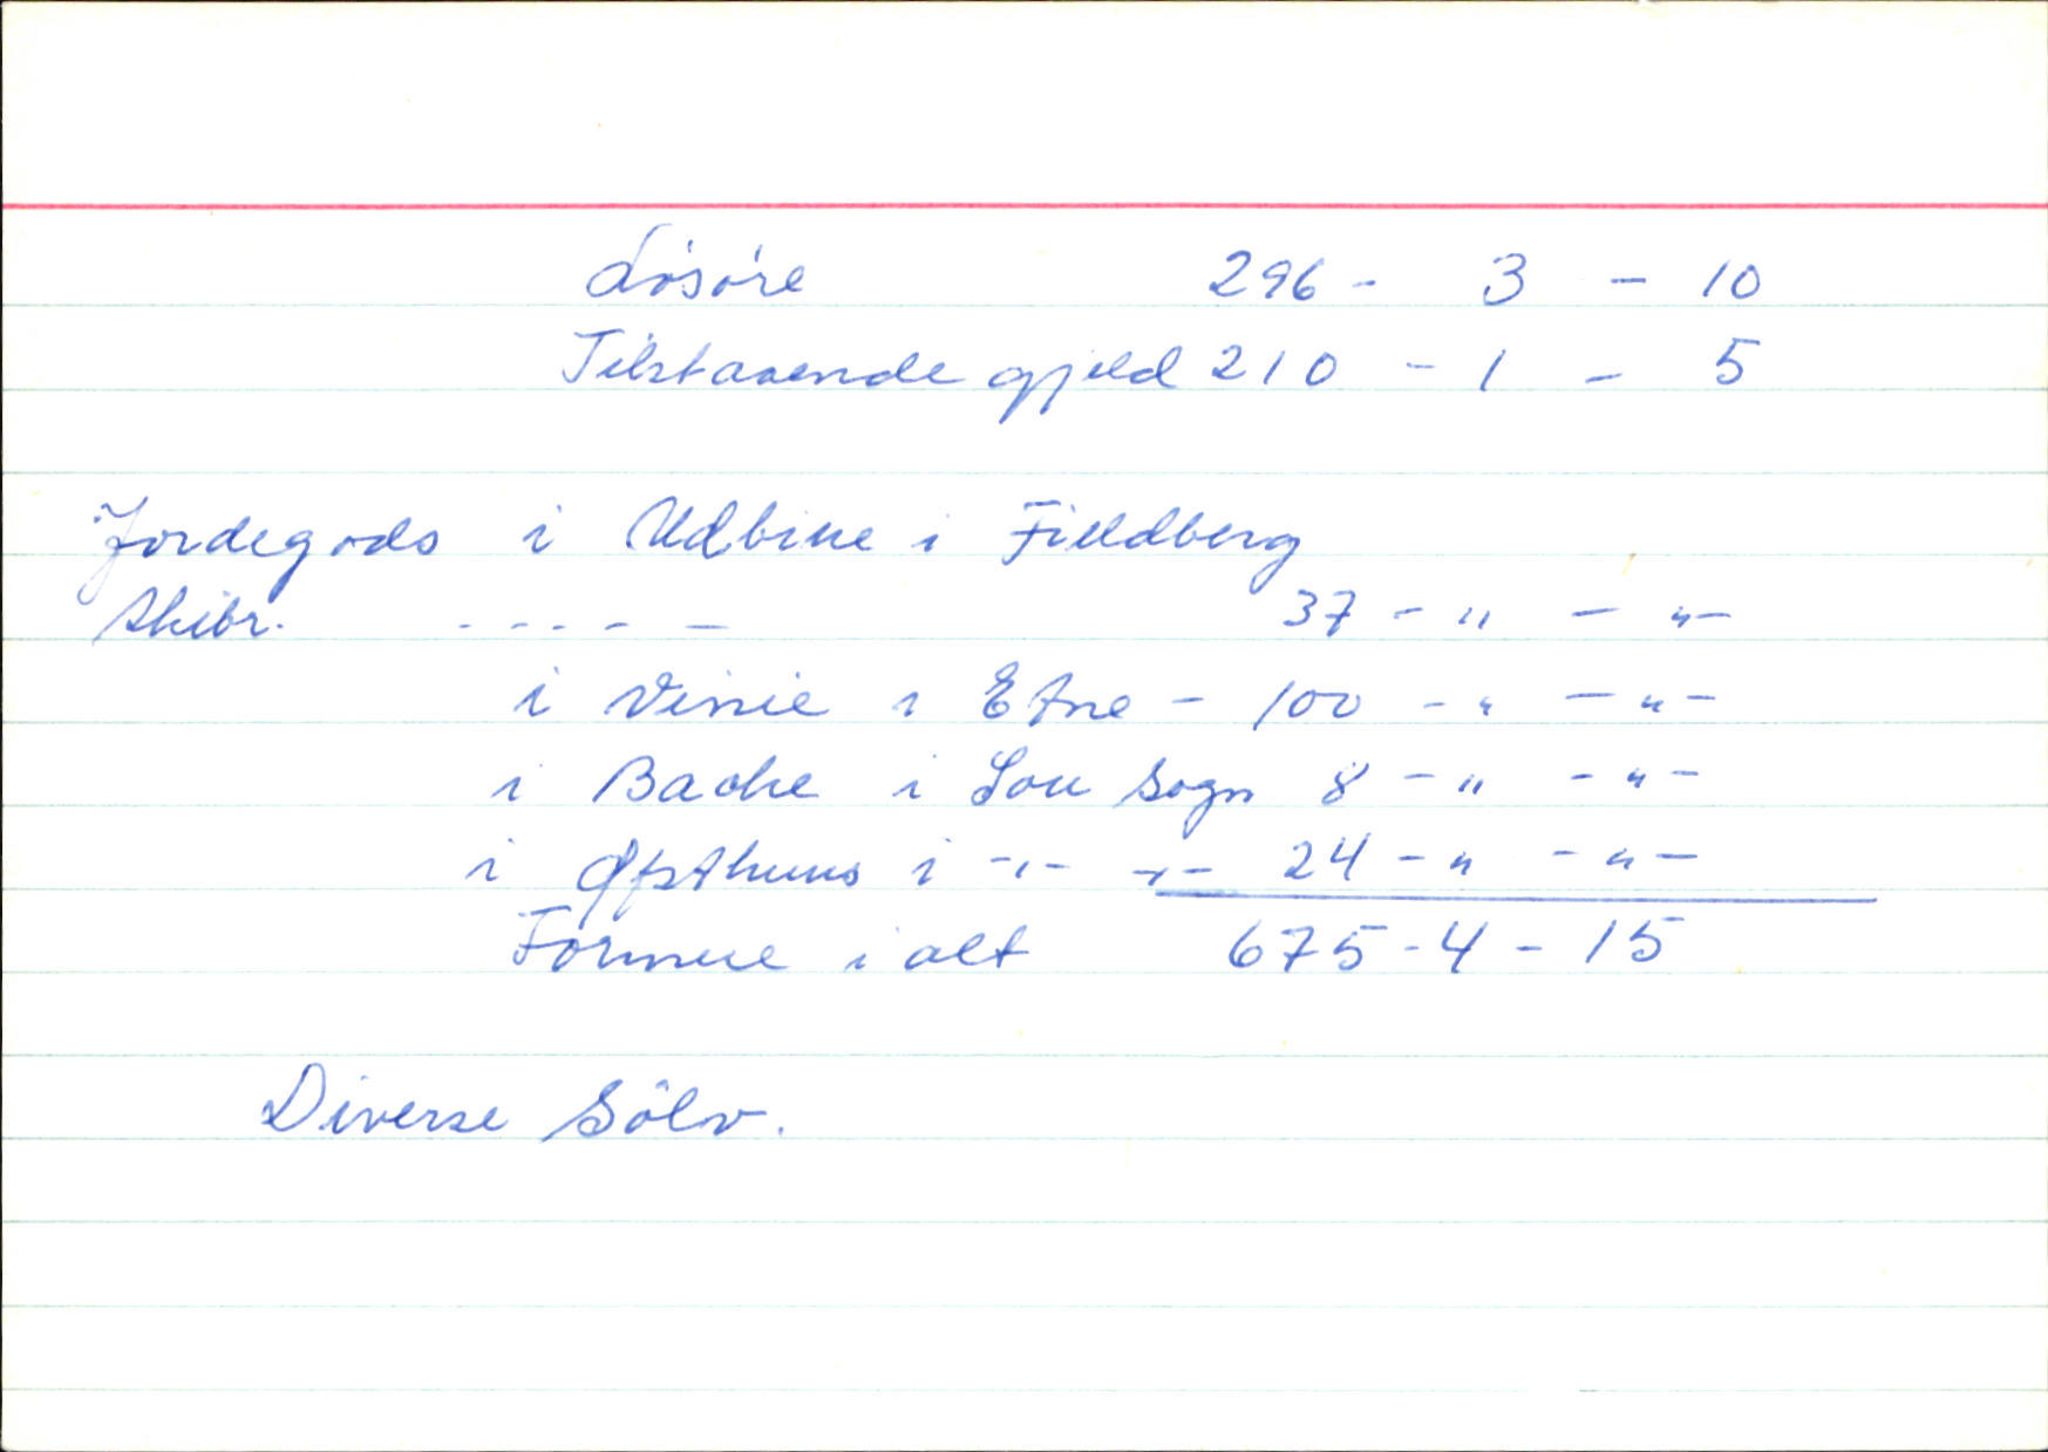 Lösöre 296 - 3 - 10
Tilstaaende gjeld 210 - 1 - 5
Jordegods i Udbiue i Fieldberg
Skibr. - - - - - 37 - " - " -
i Vinie i Etne - 100 - " - " -
i Bache i Sou Sogn 8 - " - " -
i Øfsthuus i - " - - " - 24 - " - " -
Formue i alt 675 - 4 - 15
Diverse Sölv.